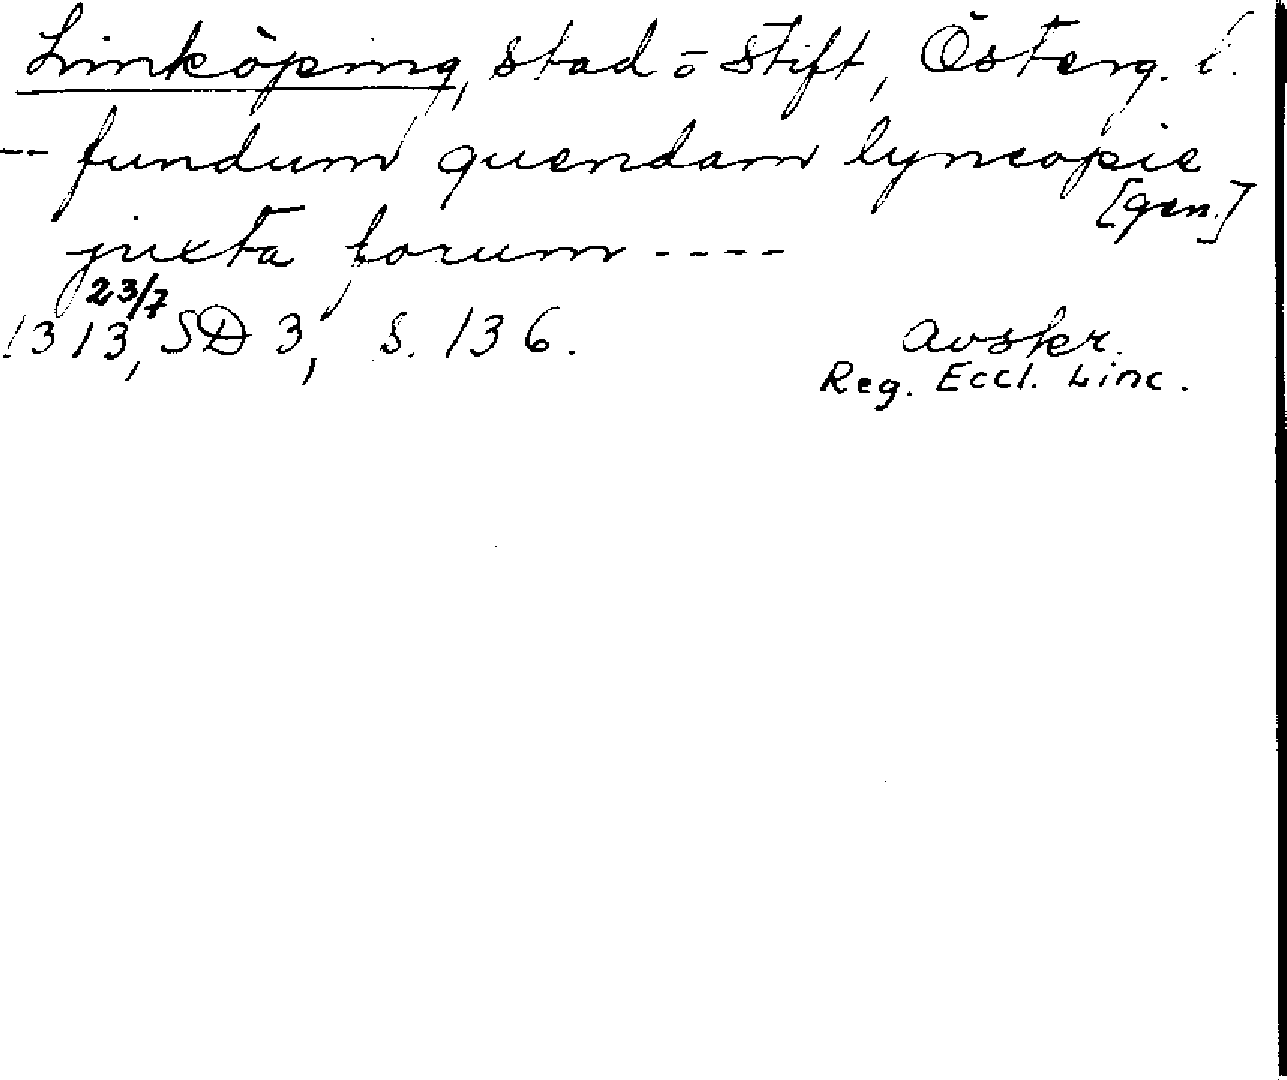 Linköping, stad o stift, Österg. l.
-- fundum quendam lyncopie
[gen.]
juxta forum ----
23/7
1313, SD 3, s. 136.
Avskr.
Reg. Eccl. Linc.